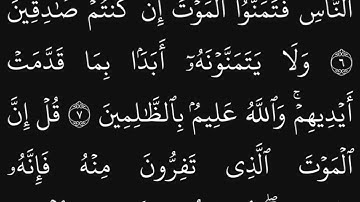 ٱلنَّاسِ فَتَمَنَّوُا۟ ٱلْمَوْتَ إِن كُنتُمْ صَـٰدِقِينَ
٦ وَلَا يَتَمَنَّوْنَهُۥٓ أَبَدًۢا بِمَا قَدَّمَتْ
أَيْدِيهِمْ ۚ وَٱللَّهُ عَلِيمٌۢ بِٱلظَّـٰلِمِينَ ٧ قُلْ إِنَّ
ٱلْمَوْتَ ٱلَّذِى تَفِرُّونَ مِنْهُ فَإِنَّهُۥ